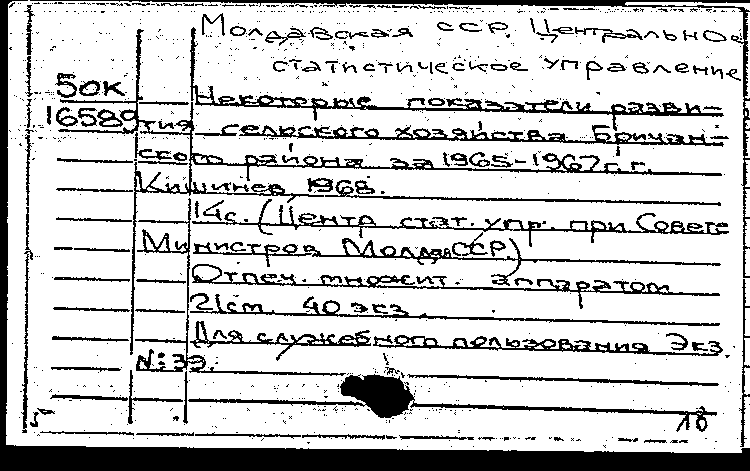 Молдавская ССР. Центральное
статистическое управление
50к
16589
Некоторые показатели разви-
тия сельского хозяйства Бричан-
ского района за 1965-1967г.г.
Кишинев, 1968.
14с. (Центр стат. упр. при Совете
Министров Молдав ССР)
Отпеч. множит. аппаратом
21см. 40 экз.
Для служебного пользования Экз.
N: 39.
5
18